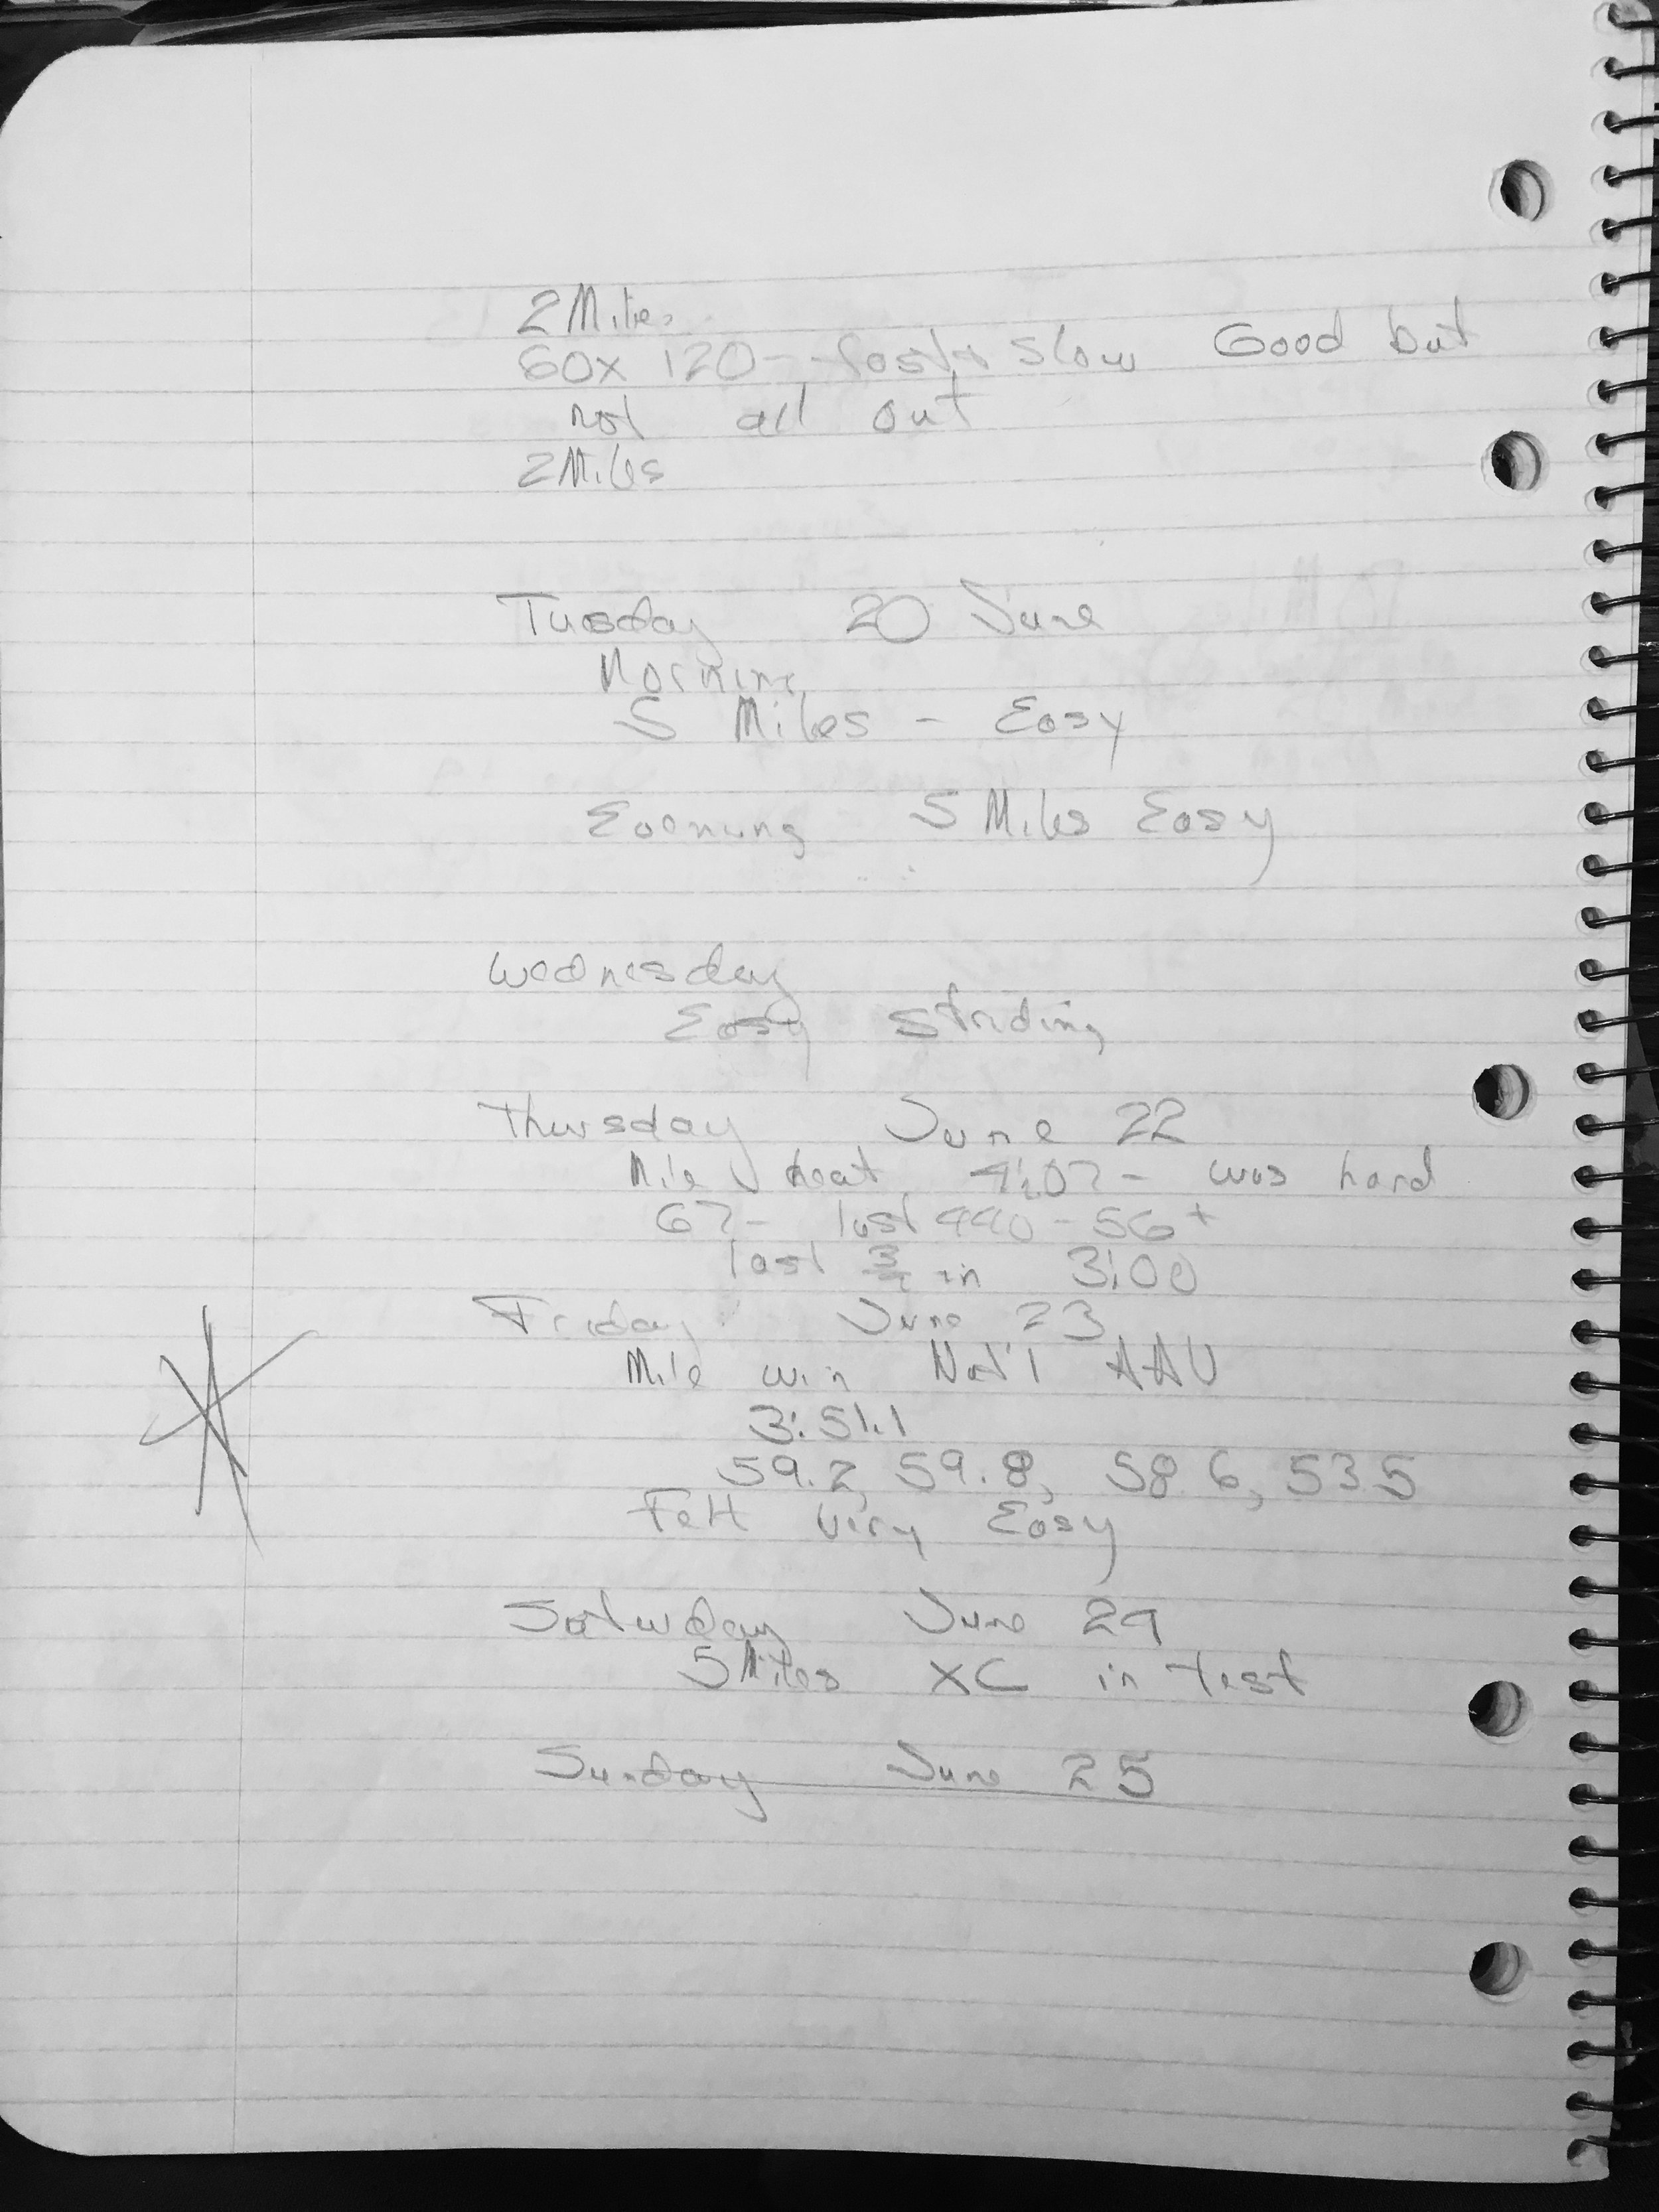 2 Miles
60x 120 - fast + slow Good but
not all out
2 Miles
Tuesday 20 June
Morning
5 Miles - Easy
Evening 5 Miles Easy
Wednesday
Easy Striding
Thursday June 22
Mile heat 4:07 - was hard
67 - last 440 - 56+
last 3/4 in 3:00
Friday June 23
Mile win Nat'l AAU
3:51.1
59.2, 59.8, 58.6, 53.5
Felt Very Easy
Saturday June 24
5 Miles XC in test
Sunday June 25